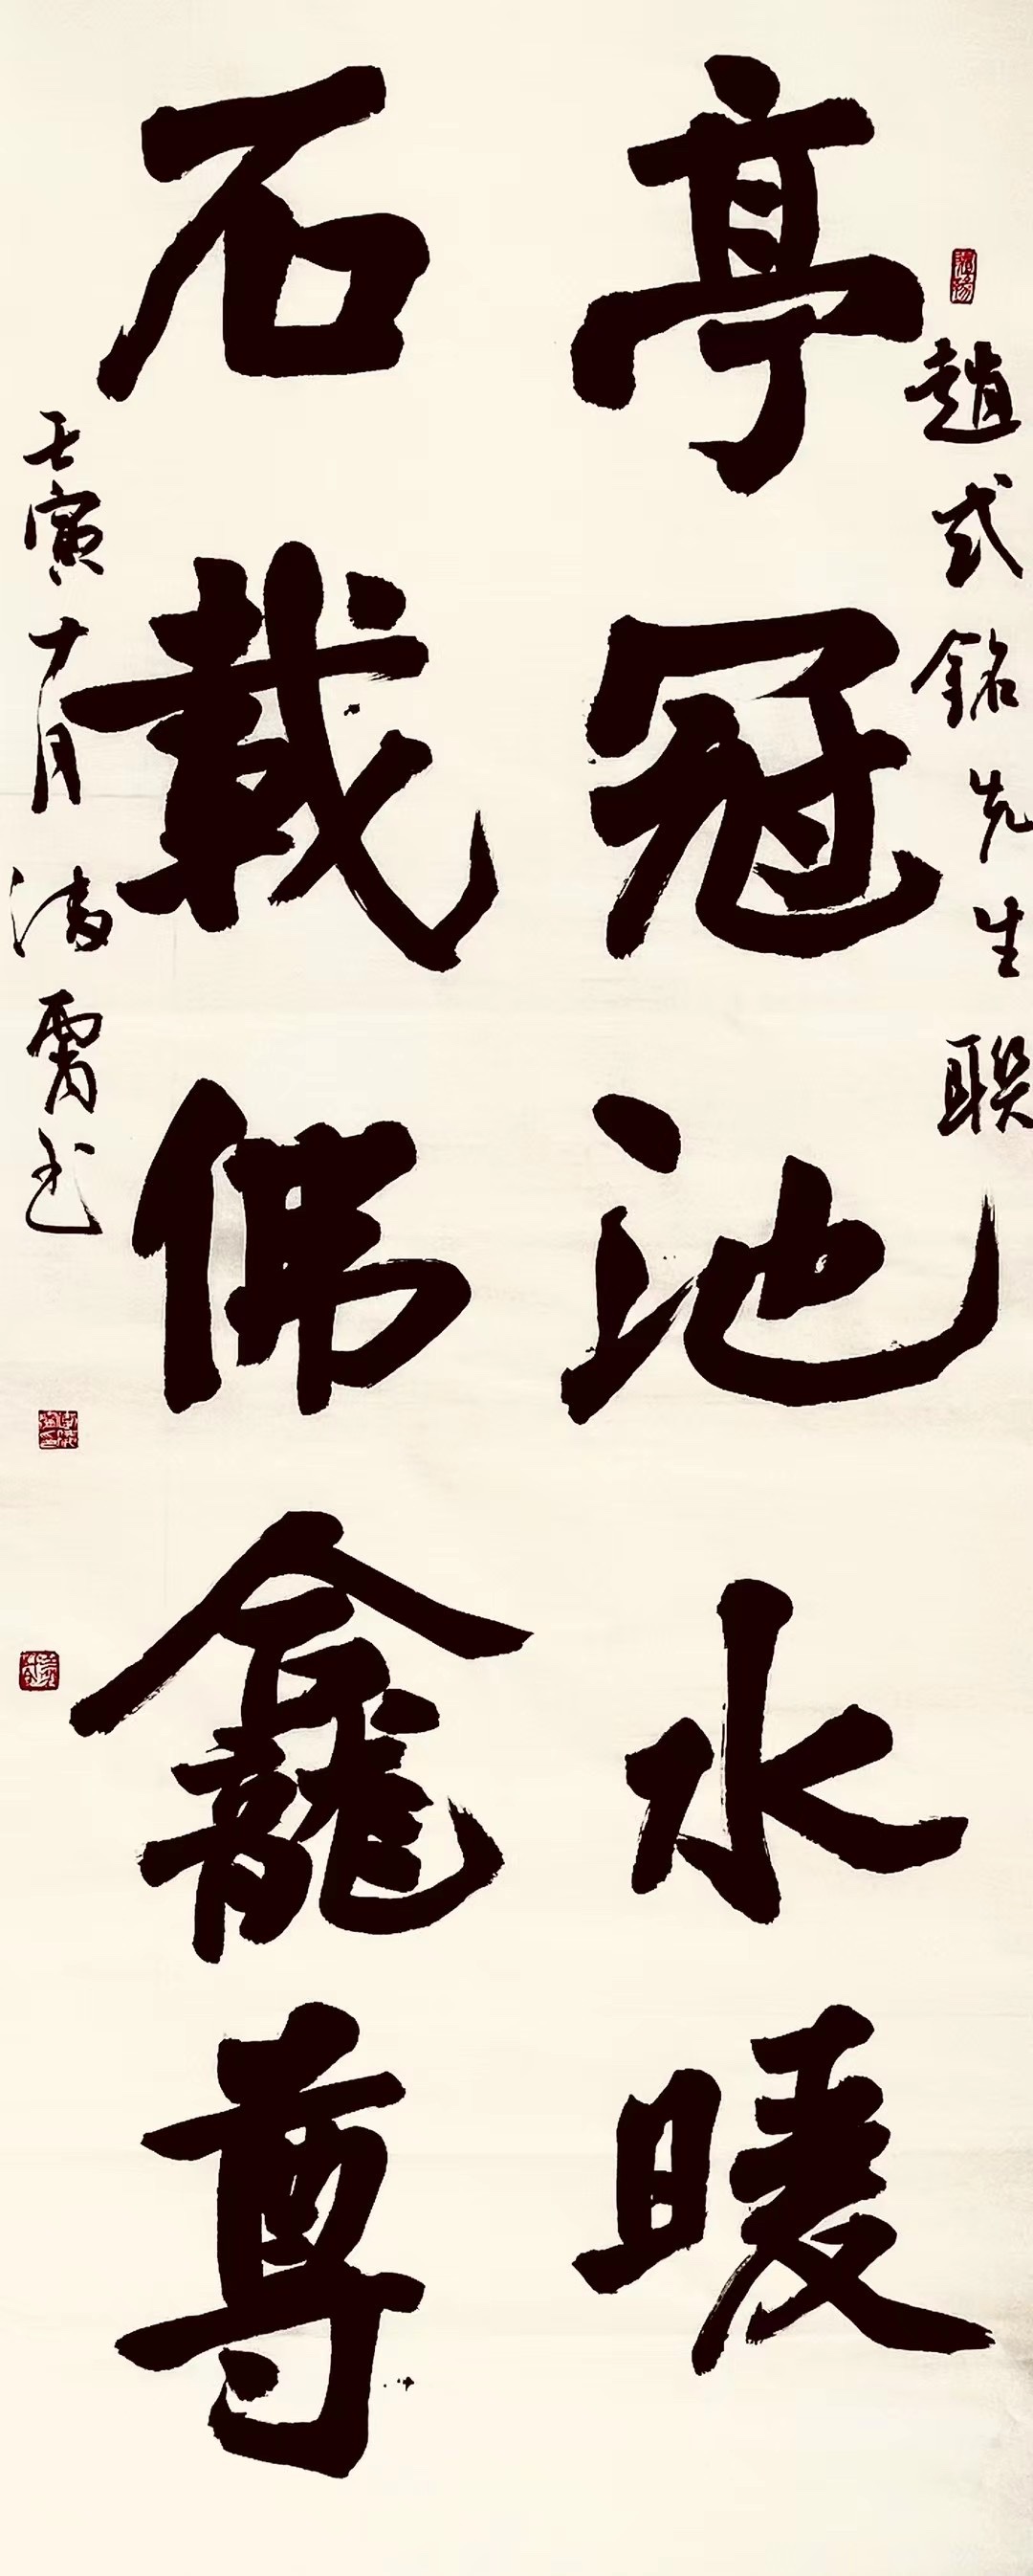 趙式銘先生聯
亭冠池水暖
石載佛龕尊
壬寅十月清霄書